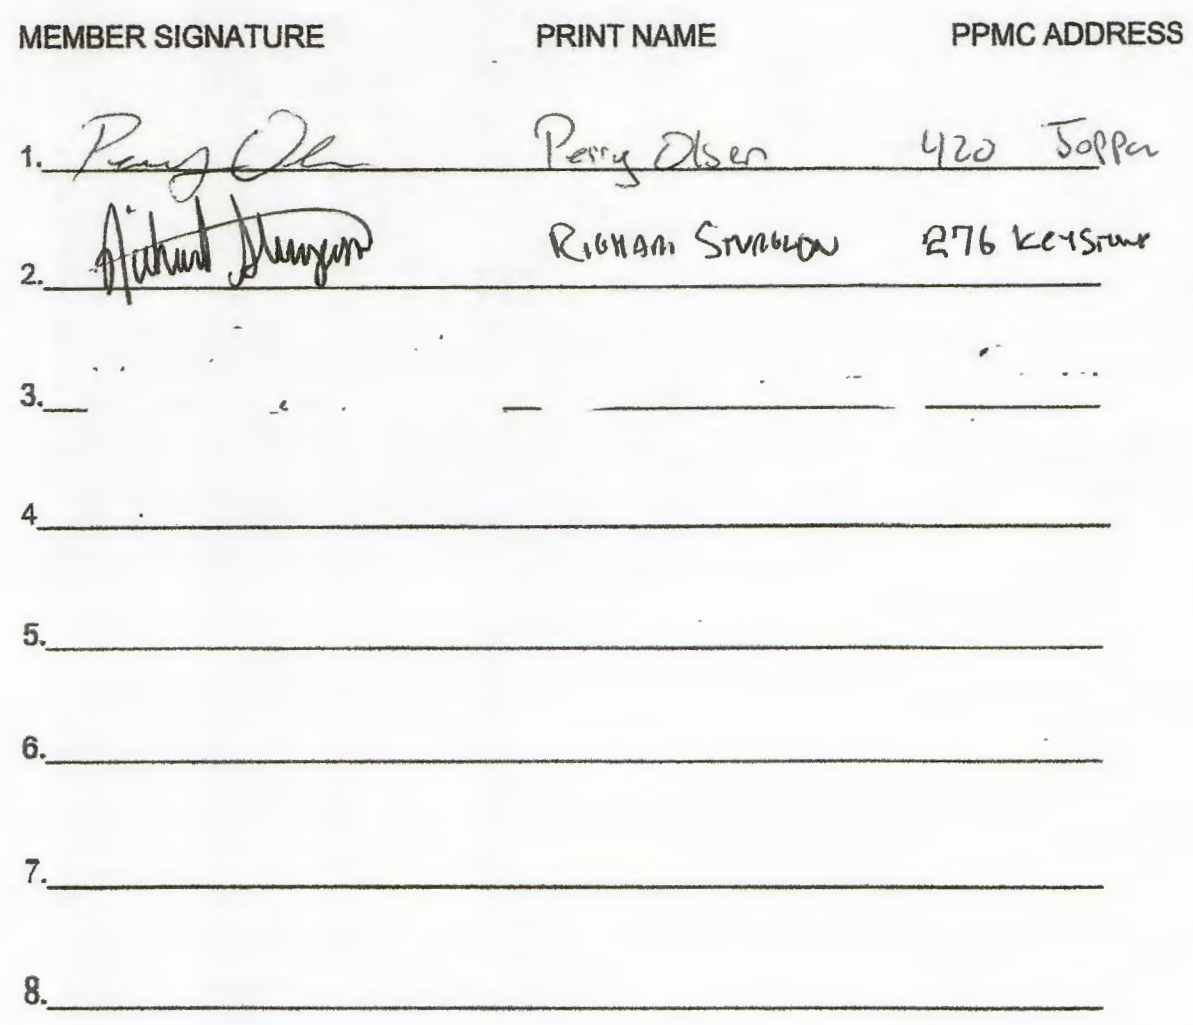 MEMBER SIGNATURE PRINT NAME PPMC ADDRESS
1. Perry Olsen Perry Olsen 420 Joppa
2. Richard Sturgeon RICHARD STURGEON 276 KEYSTONE
3.
4
5.
6.
7.
8.